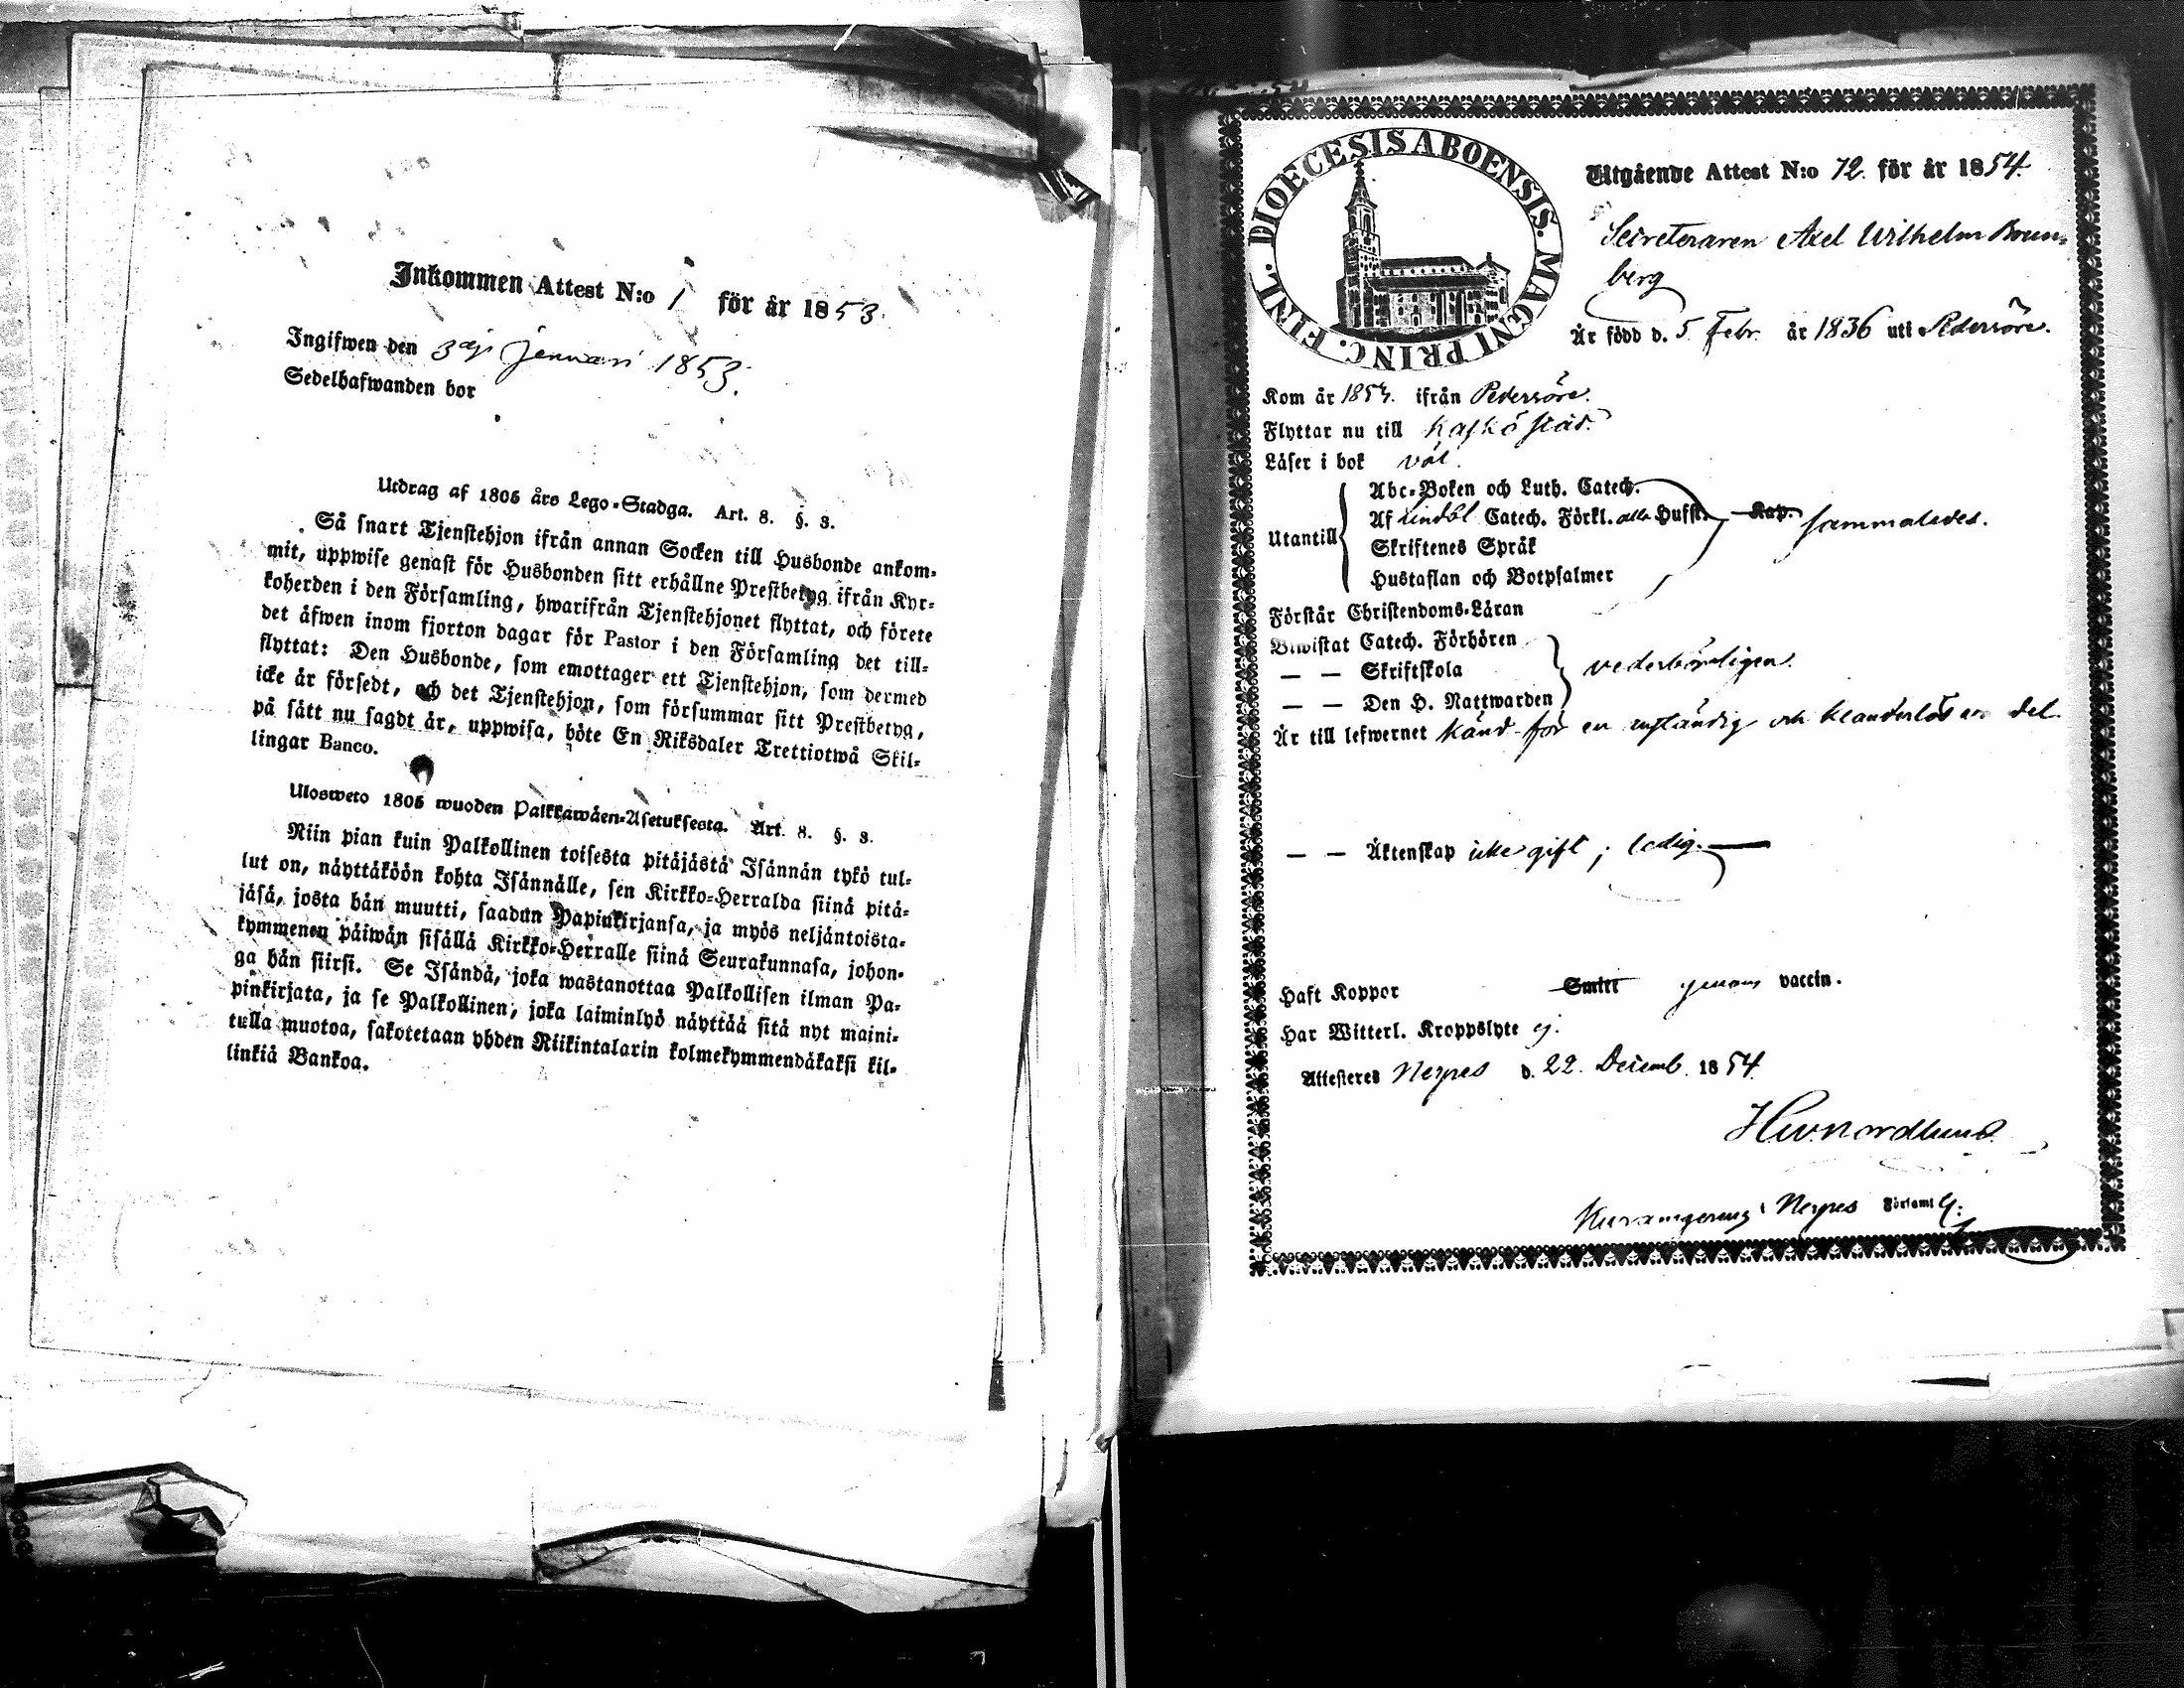 Inkommen Attest N:o 1 för år 1853.
Ingifwen den 3dje Januari 1853.
Sedelhafwanden bor
Utdrag af 1805 års Lego-Stadga. Art. 8. §. 3.
Så snart Tjenstehjon ifrån annan Socken till Husbonde ankom-
mit, uppwise genast för Husbonden sitt erhållne Prestbetyg ifrån Kyr-
koherden i den Församling, hwarifrån Tjenstehjonet flyttat, och förete
det äfwen inom fjorton dagar för Pastor i den Församling det till-
flyttat: Den Husbonde, som emottager ett Tjenstehjon, som dermed
icke är försedt, och det Tjenstehjon, som försummar sitt Prestbetyg,
på sätt nu sagdt är, uppwisa, böte En Riksdaler Trettiotwå Skil-
lingar Banco.
Ulosweto 1805 wuoden Palkkawäen-Asetuksesta. Art. 8. §. 3.
Niin pian kuin Palkollinen toisesta pitäjästä Isännän tykö tul-
lut on, näyttäköön kohta Isännälle, sen Kirkko-Herralda siinä pitä-
jäsä, josta hän muutti, saadun Papinkirjansa, ja myös neljäntoista-
kymmenen päiwän sisällä Kirkko-Herralle siinä Seurakunnasa, johon-
ga hän siirsi. Se Isändä, joka wastanottaa Palkollisen ilman Pa-
pinkirjata, ja se Palkollinen, joka laiminlyö näyttää sitä nyt maini-
tulla muotoa, sakotetaan yhden Riikintalarin kolmekymmendäkaksi kil-
linkiä Bankoa.
DIOECESIS ABOENSIS. MAGNI PRINC. FINL.
Utgående Attest N:o 72. för år 1854.
Secreteraren Axel Wilhelm
berg
Är född d. 5 Febr. år 1836 uti Pedersöre.
Kom år 1854. ifrån Pedersöre.
Flyttar nu till Kaskö stad.
Läser i bok väl.
Abc-Boken och Luth. Catech.
Utantill Af Lindbl Catech. Förkl. alla Hufst. Kap. sammaledes.
Skriftenes Språk
Hustaflan och Botpsalmer
Förstår Christendoms-Läran
Biwistat Catech. Förhören
— — Skriftskola vederbörligen.
— — Den H. Nattwarden
Är till lefwernet känd för en anständig och klanderlös del.
— — Äktenskap icke gift; ledig.
Haft Koppor Smitt genom vaccin.
Har Witterl. Kroppslyte ej.
Attesteres Nerpes d. 22. Decemb. 1854.
Nordlund
i Nerpes Församl